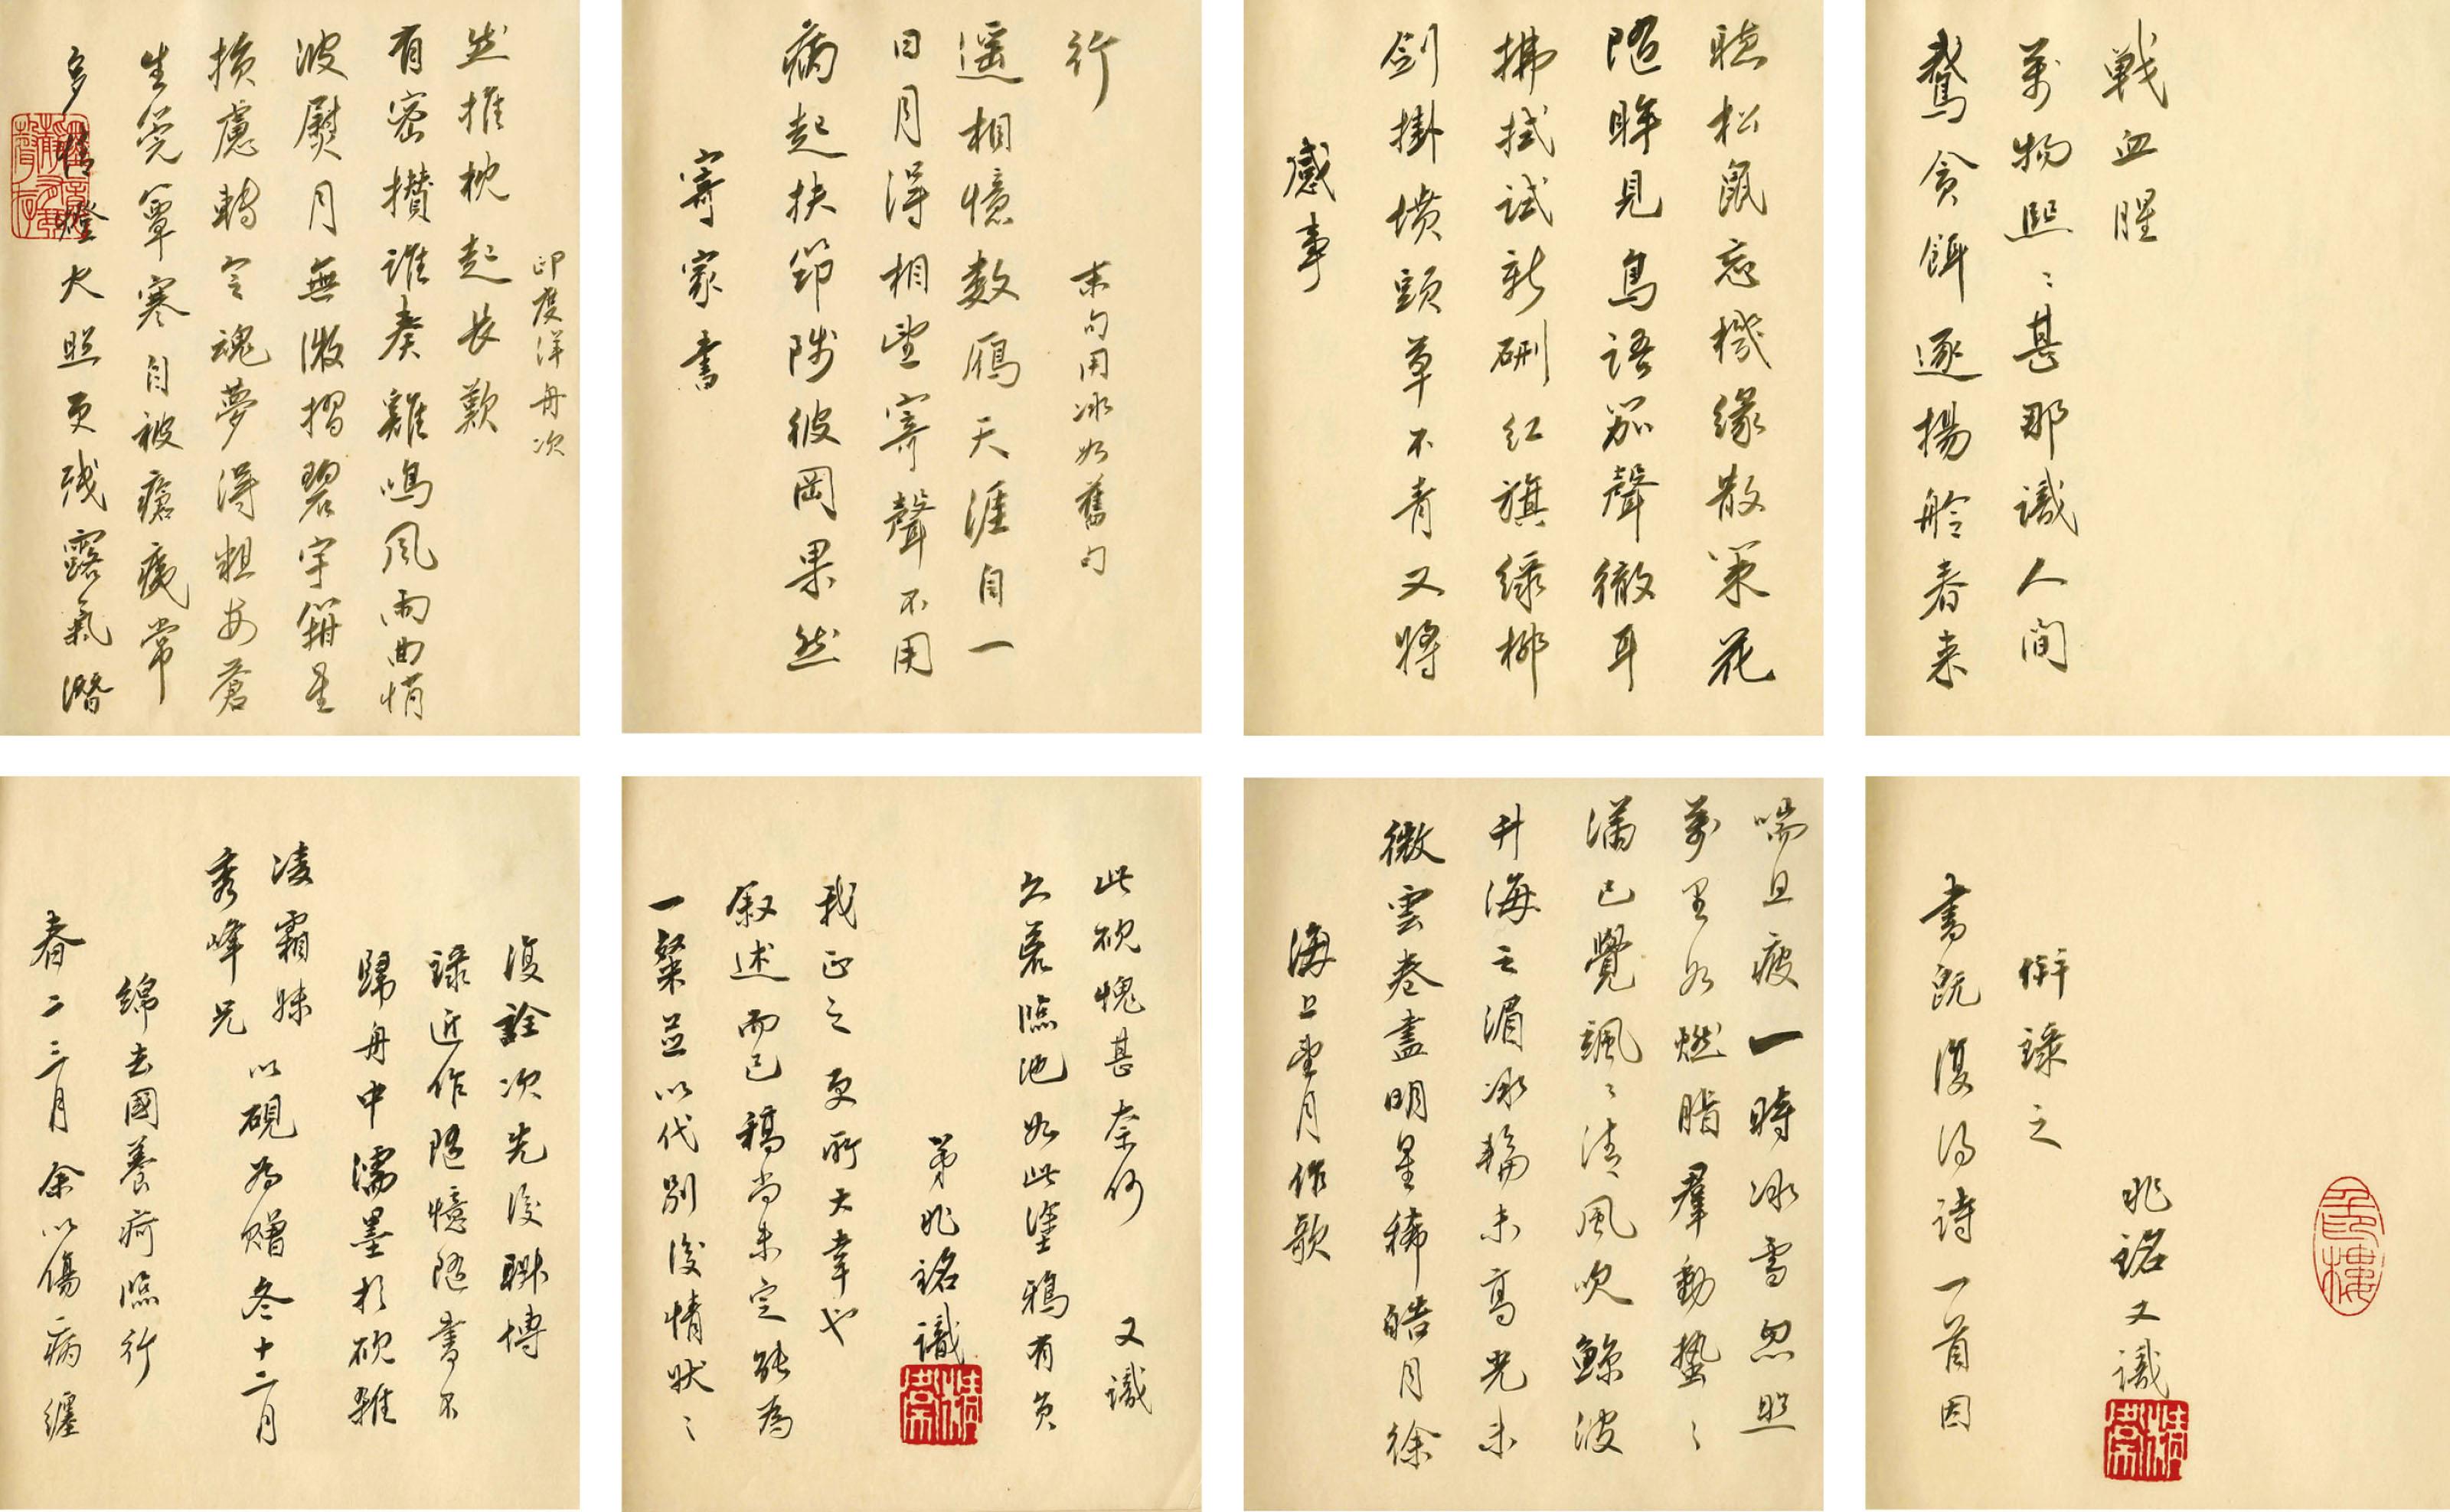 多情燈火照更殘露氣潛
生筦簟寒自被瘡痍常
損慮轉令魂夢得粗安蒼
波熨月無微摺碧宇箝星
有密攢誰奏雞鳴風雨曲悄
然推枕起長歎
印度洋舟次
寄家書
病起扶筇陟彼岡果然
日月得相望寄聲不用
遥相憶数雁天涯自一
行 末句用冰如舊句
感事
劍掛墳頭草不青又將
拂拭試新硎紅旗綠柳
隨眸見鳥語笳聲徹耳
聽松鼠忘機緣散策花
鷙貪餌逐揚舲春来
萬物熙〻甚那識人間
戰血腥
春二三月余以傷病纏
綿去國養疴臨行
秀峰兄
凌霜妹
以硯為贈冬十二月
歸舟中濡墨於硯雜
錄近作隨憶隨書不
復詮次先後聊博
一粲並以代別後情狀〻
叙述而已稿尚未定能為
我正之更所大幸也
弟兆銘識
久荒臨池如此塗鴉有負
此硯愧甚奈何 又識
海上望月作歌
微雲卷盡明星稀皓月徐
升海之湄冰輪未高光未
滿已覺颯〻清風吹鯨波
萬里如燃脂羣動蟄〻
喘且疲一時冰雪忽照
書既復得詩一首因
併錄之
兆銘又識